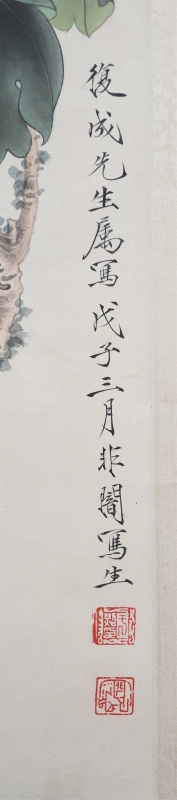 復成先生属寫戊子三月非闇寫生